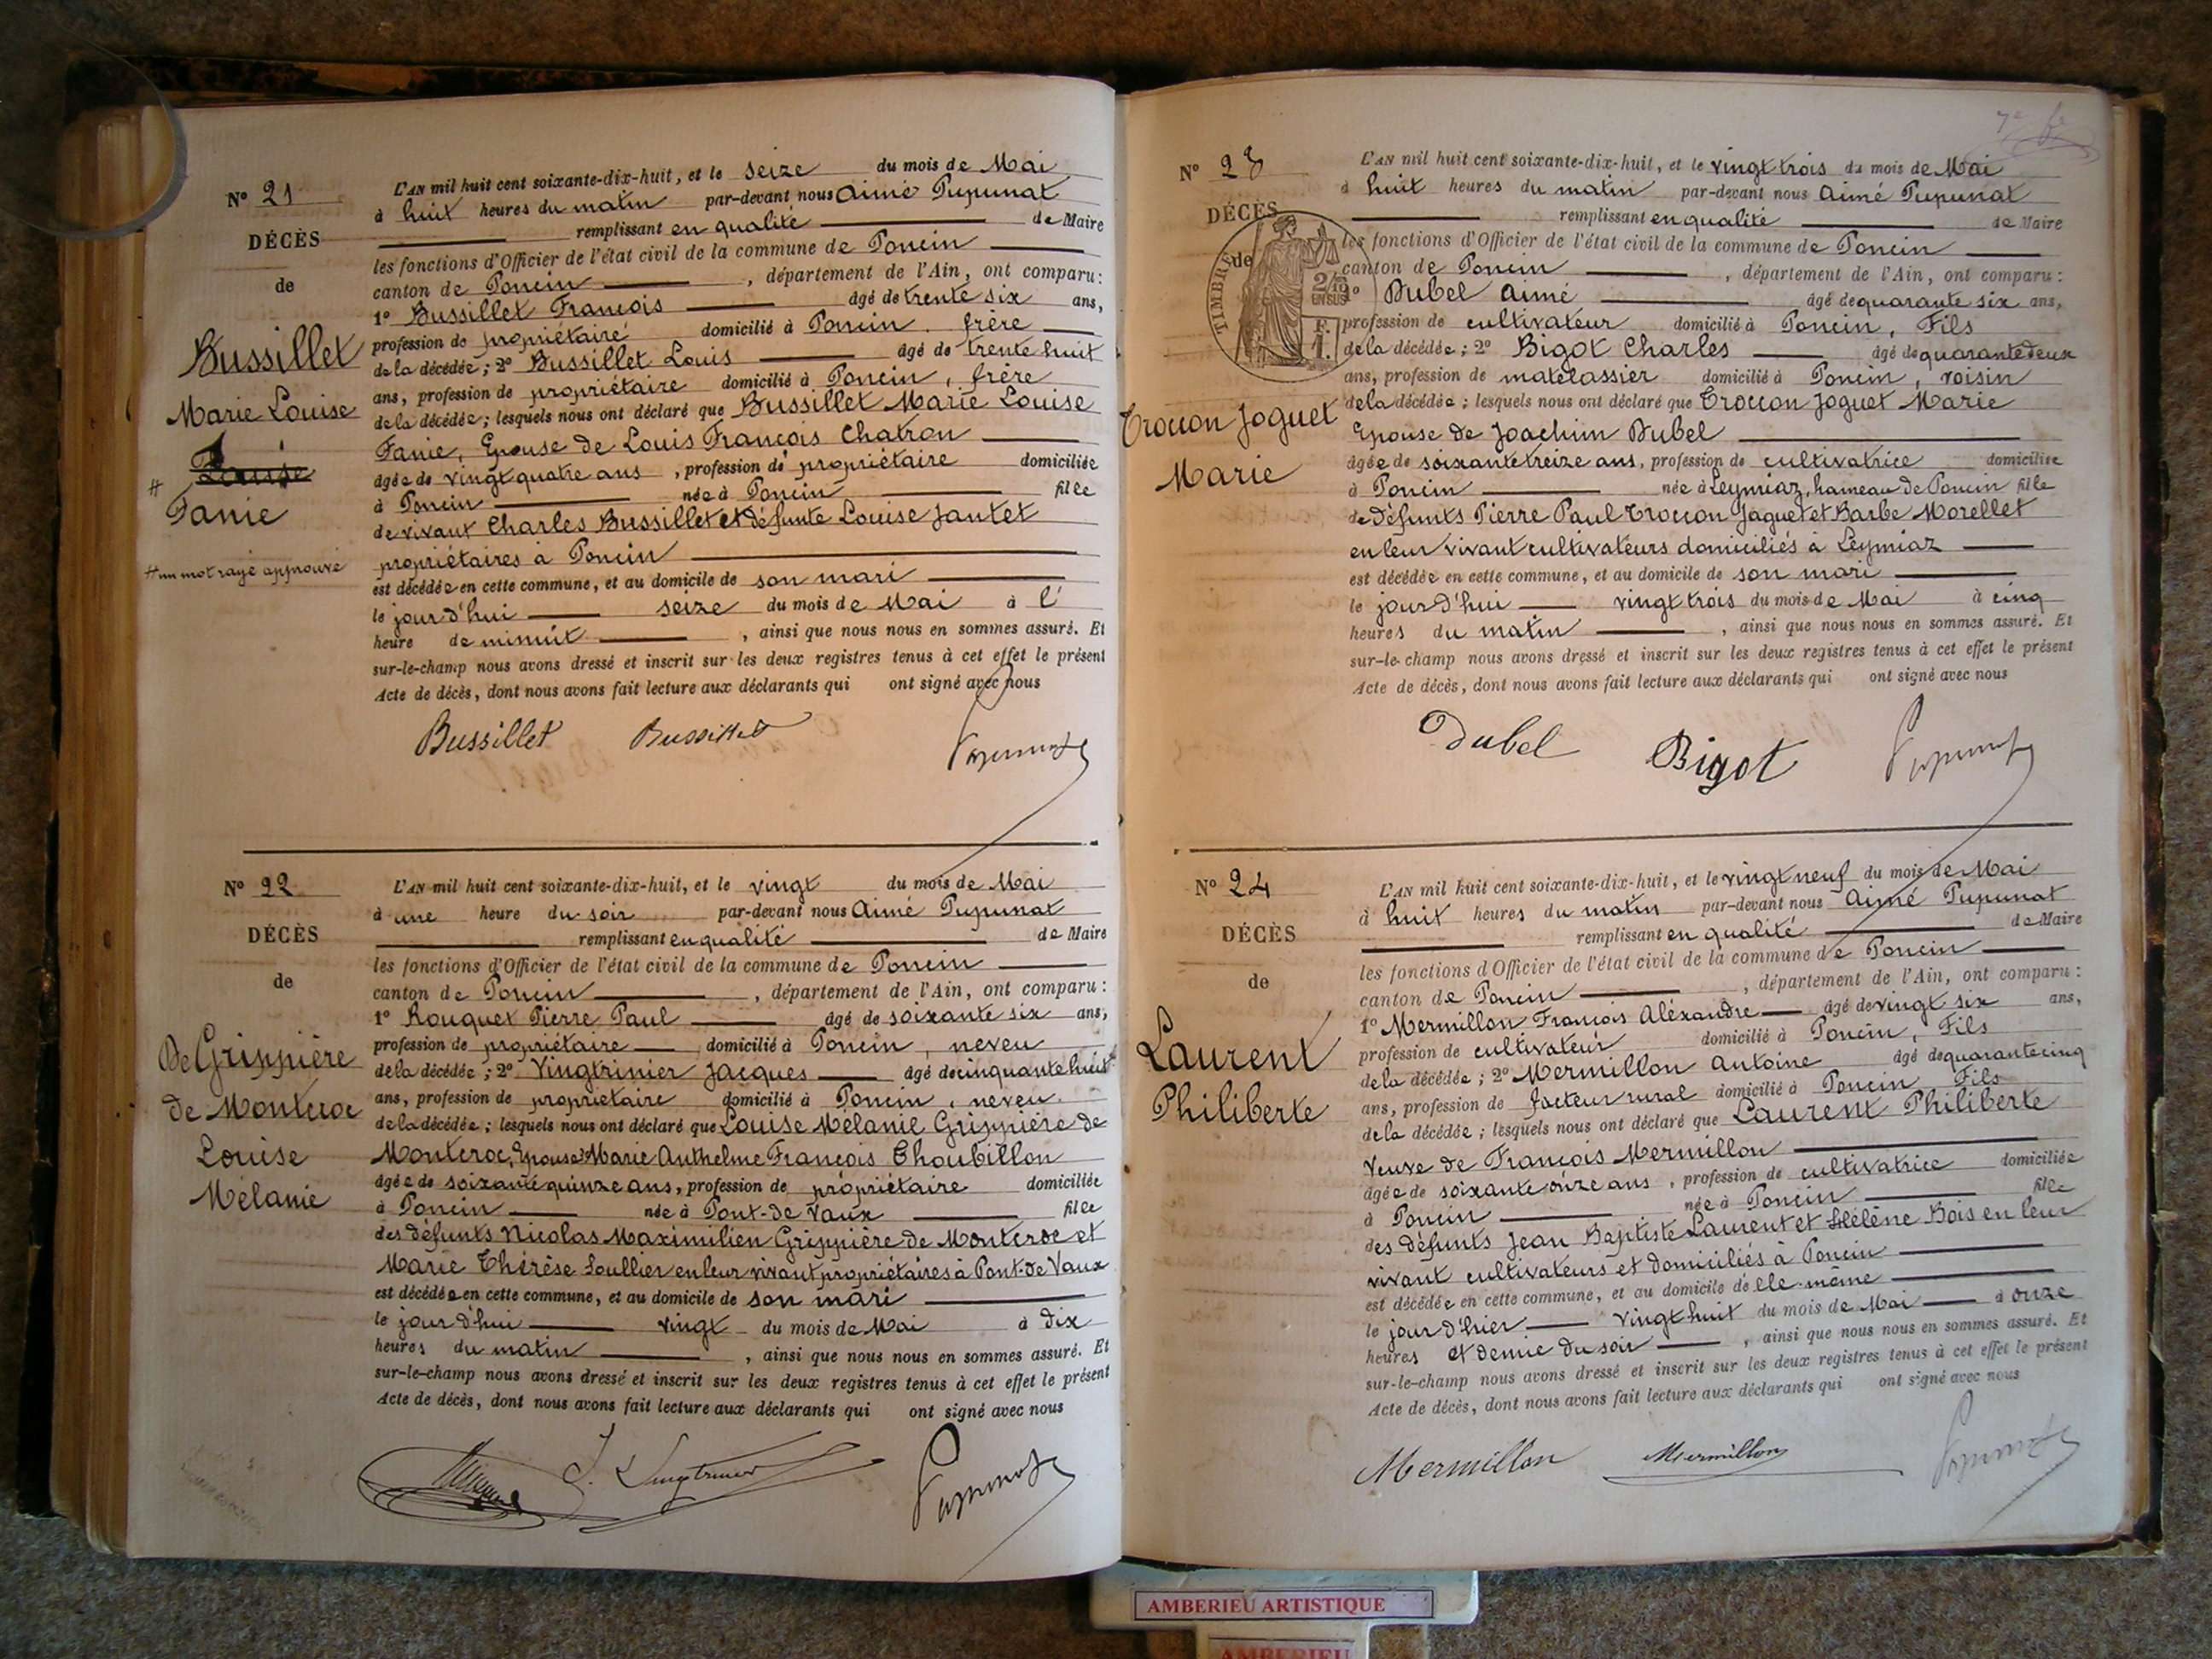 N° 21
DÉCÈS
de
Bussillet
Marie Louise
Fanie
# un mot rayé approuvé
L'AN mil huit cent soixante-dix-huit, et le seize du mois de Mai
à huit heures du matin par-devant nous Aimé Pupunat
remplissant en qualité de Maire
les fonctions d'Officier de l'état civil de la commune de Poncin
canton de Poncin, département de l'Ain, ont comparu :
1° Bussillet François âgé de trente six ans,
profession de propriétaire domicilié à Poncin, frère
de la décédée ; 2° Bussillet Louis âgé de trente huit
ans, profession de propriétaire domicilié à Poncin, frère
de la décédée ; lesquels nous ont déclaré que Bussillet Marie Louise
Fanie, Epouse de Louis François Chatron
âgée de vingt quatre ans, profession de propriétaire domiciliée
à Poncin née à Poncin fille
de vivant Charles Bussillet et défunte Louise Jantet
propriétaires à Poncin
est décédée en cette commune, et au domicile de son mari
le jour d'hui seize du mois de Mai à l'
heure de minuit, ainsi que nous nous en sommes assuré. Et
sur-le-champ nous avons dressé et inscrit sur les deux registres tenus à cet effet le présent
Acte de décès, dont nous avons fait lecture aux déclarants qui ont signé avec nous
Bussillet Bussillet Pupunat
N° 22
DÉCÈS
de
De Grippière
de Montcroc
Louise
Mélanie
L'AN mil huit cent soixante-dix-huit, et le vingt du mois de Mai
à une heure du soir par-devant nous Aimé Pupunat
remplissant en qualité de Maire
les fonctions d'Officier de l'état civil de la commune de Poncin
canton de Poncin, département de l'Ain, ont comparu :
1° Rouquet Pierre Paul âgé de soixante six ans,
profession de propriétaire domicilié à Poncin, neveu
de la décédée ; 2° Vingtrinier Jacques âgé de cinquante huit
ans, profession de propriétaire domicilié à Poncin, neveu
de la décédée ; lesquels nous ont déclaré que Louise Mélanie Grippière de
Montcroc, Epouse Marie Anthelme François Choubillon
âgée de soixante quinze ans, profession de propriétaire domiciliée
à Poncin née à Pont-de Vaux fille
des défunts Nicolas Maximilien Grippière de Montcroc et
Marie Thérèse Soullier en leur vivant propriétaires à Pont-de Vaux
est décédée en cette commune, et au domicile de son mari
le jour d'hui vingt du mois de Mai à dix
heures du matin, ainsi que nous nous en sommes assuré. Et
sur-le-champ nous avons dressé et inscrit sur les deux registres tenus à cet effet le présent
Acte de décès, dont nous avons fait lecture aux déclarants qui ont signé avec nous
J. Vingtrinier Pupunat
7e
N° 23
DÉCÈS
de
TIMBRE
2/10 EN SUS
1 F.
Trocon Joguet
Marie
L'AN mil huit cent soixante-dix-huit, et le vingt trois du mois de Mai
à huit heures du matin par-devant nous Aimé Pupunat
remplissant en qualité de Maire
les fonctions d'Officier de l'état civil de la commune de Poncin
canton de Poncin, département de l'Ain, ont comparu :
1° Dubel Aimé âgé de quarante six ans,
profession de cultivateur domicilié à Poncin, Fils
de la décédée ; 2° Bigot Charles âgé de quarante deux
ans, profession de matelassier domicilié à Poncin, voisin
de la décédée ; lesquels nous ont déclaré que Trocon Joguet Marie
Epouse de Joachim Dubel
âgée de soixante treize ans, profession de cultivatrice domiciliée
à Poncin née à Leymiaz, hameau de Poncin fille
de défunts Pierre Paul Trocon Jaguet et Barbe Morellet
en leur vivant cultivateurs domiciliés à Leymiaz
est décédée en cette commune, et au domicile de son mari
le jour d'hui vingt trois du mois de Mai à cinq
heures du matin, ainsi que nous nous en sommes assuré. Et
sur-le-champ nous avons dressé et inscrit sur les deux registres tenus à cet effet le présent
Acte de décès, dont nous avons fait lecture aux déclarants qui ont signé avec nous
Dubel Bigot Pupunat
N° 24
DÉCÈS
de
Laurent
Philiberte
L'AN mil huit cent soixante-dix-huit, et le vingt neuf du mois de Mai
à huit heures du matin par-devant nous Aimé Pupunat
remplissant en qualité de Maire
les fonctions d'Officier de l'état civil de la commune de Poncin
canton de Poncin, département de l'Ain, ont comparu :
1° Mermillon François Aléxandre âgé de vingt six ans,
profession de cultivateur domicilié à Poncin, Fils
de la décédée ; 2° Mermillon Antoine âgé de quarante cinq
ans, profession de facteur rural domicilié à Poncin Fils
de la décédée ; lesquels nous ont déclaré que Laurent Philiberte
Veuve de François Mermillon
âgée de soixante onze ans, profession de cultivatrice domiciliée
à Poncin née à Poncin fille
des défunts Jean Baptiste Laurent et Hélène Bois en leur
vivant cultivateurs et domiciliés à Poncin
est décédée en cette commune, et au domicile de elle-même
le jour d'hier vingt huit du mois de Mai à onze
heures et demie du soir, ainsi que nous nous en sommes assuré. Et
sur-le-champ nous avons dressé et inscrit sur les deux registres tenus à cet effet le présent
Acte de décès, dont nous avons fait lecture aux déclarants qui ont signé avec nous
Mermillon Mermillon Pupunat
AMBERIEU ARTISTIQUE
AMBERIEU